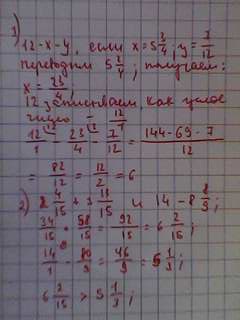 1)
12-x-y, если x=5 3/4; y=7/12
переводим 5 3/4; получаем:
x = 23/4;
12 записываем, как целое
число = 12/1
12/1 - 23/4 - 7/12 = (144-69-7)/12
= 82/12 = 12/2 = 6
2) 2 4/15 + 3 13/15 и 14 - 8 8/9;
34/15 + 58/15 = 92/15 = 6 2/15;
14/1 - 80/9 = 46/9 = 5 1/9;
6 2/15 > 5 1/9;